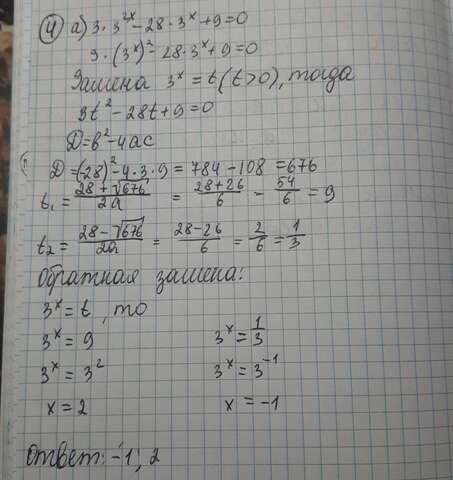 ④ а) 3·3^{2x} - 28·3^x + 9 = 0
3·(3^x)^2 - 28·3^x + 9 = 0
Замена 3^x = t (t>0), тогда
3t^2 - 28t + 9 = 0
D = b^2 - 4ac
D = (-28)^2 - 4·3·9 = 784 - 108 = 676
t_1 = \frac{28+\sqrt{676}}{2a} = \frac{28+26}{6} - \frac{54}{6} = 9
t_2 = \frac{28-\sqrt{676}}{2a} = \frac{28-26}{6} = \frac{2}{6} = \frac{1}{3}
Обратная замена:
3^x = t, то
3^x = 9 3^x = \frac{1}{3}
3^x = 3^2 3^x = 3^{-1}
x = 2 x = -1
Ответ: -1; 2